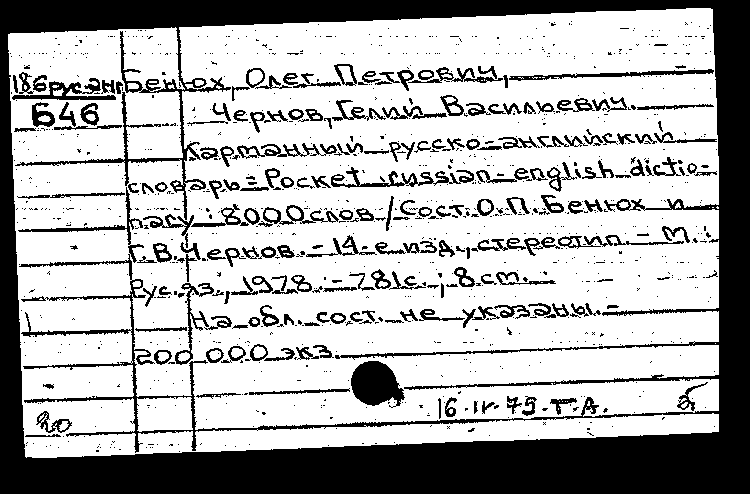 18брус.анг Бенюх, Олег Петрович,
Б46 Чернов, Гелий Васильевич.
Карманный русско-английский
словарь = Pocket russian-english dictio-
nary : 8000 слов / Сост. О.П. Бенюх и
Г.В. Чернов. - 14-е изд., стереотип. - М. :
Рус. яз., 1978. - 781с. ; 8 см.
На обл. сост. не указаны. -
200 000 экз.
16.IV.79. Т.А. б
20